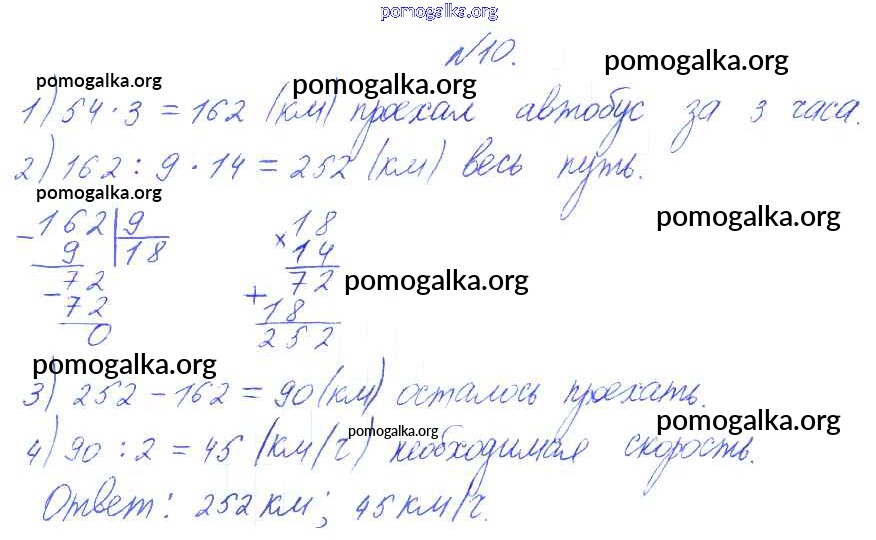 pomogalka.org
№10.
pomogalka.org pomogalka.org pomogalka.org
1) 54 · 3 = 162 (км) проехал автобус за 3 часа.
2) 162 : 9 · 14 = 252 (км) весь путь.
pomogalka.org
pomogalka.org
- 162 | 9 18
9 18 × 14
- 72 72 pomogalka.org
72 + 18
0 252
pomogalka.org
3) 252 - 162 = 90 (км) осталось проехать.
pomogalka.org pomogalka.org
4) 90 : 2 = 45 (км/ч) необходимая скорость.
Ответ: 252 км; 45 км/ч.